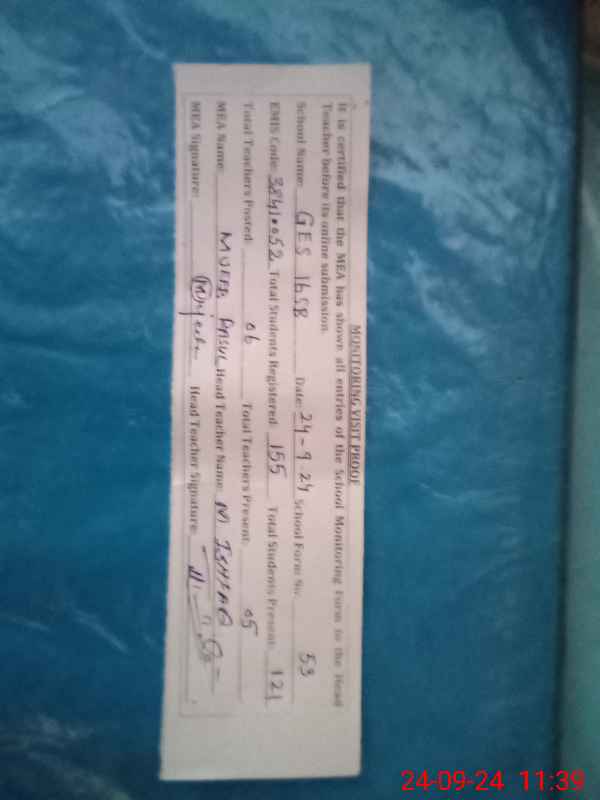 MONITORING VISIT PROOF
It is certified that the MEA has shown all entries of the School Monitoring Form to the Head
Teacher before its online submission.
School Name: GES 165B Date: 24-9-24 School Form No. 53
EMIS Code: 38410052 Total Students Registered: 155 Total Students Present: 121
Total Teachers Posted: 06 Total Teachers Present: 05
MEA Name: Head Teacher Name: M ISHFAQ
MEA Signature: Head Teacher Signature:
24-09-24 11:39